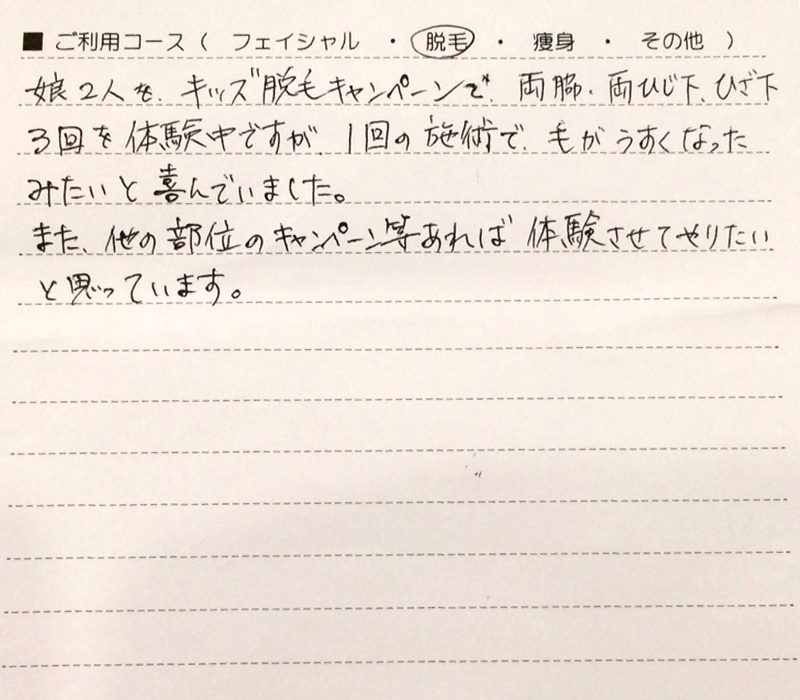 ■ ご利用コース ( フェイシャル ・ 脱毛 ・ 痩身 ・ その他 )
娘2人を、キッズ脱毛キャンペーンで、両脇、両ひじ下、ひざ下
3回を体験中ですが、1回の施術で、毛がうすくなった
みたいと喜んでいました。
また、他の部位のキャンペーン等あれば体験させてやりたい
と思っています。